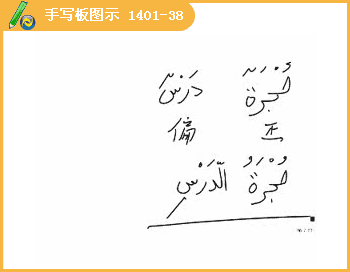 手写板图示 1401-38
حُجْرَةٌ دَرْسٌ
偏 正
حُجْرَةُ الدَّرْسِ